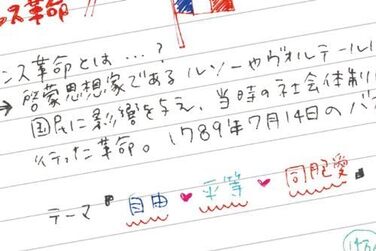 ンス革命
ンス革命とは…?
→ 啓蒙思想家であるルソーやヴォルテール
国民に影響を与え、当時の社会体制
行った革命。1789年7月14日のバ
テーマ『自由♥平等♥同胞愛』